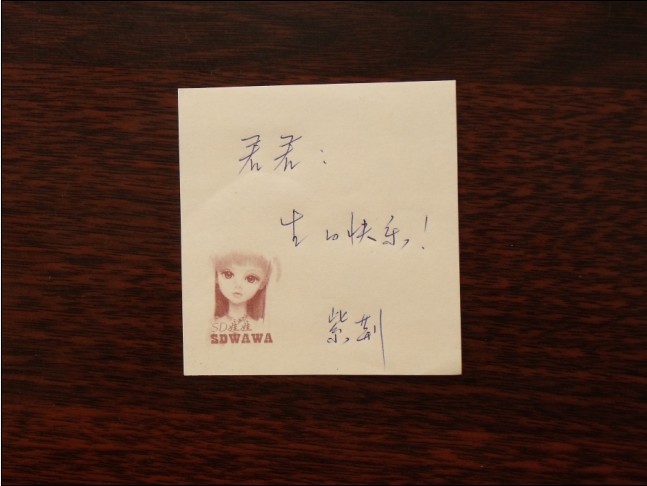 君君：
生日快乐！
紫荆
SD娃娃
SDWAWA